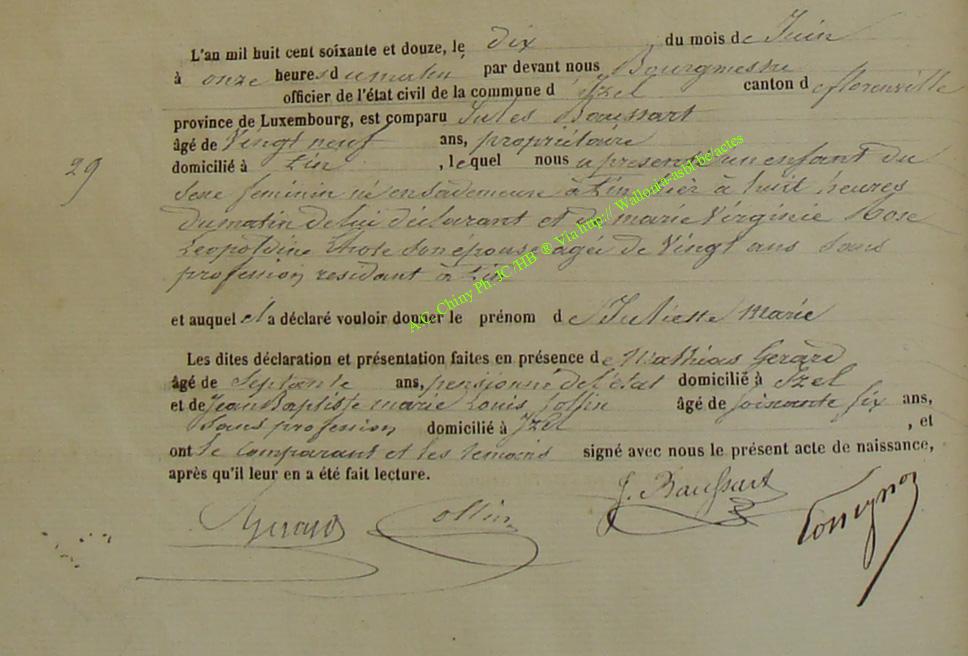 L'an mil huit cent soixante et douze, le dix du mois de Juin
à onze heures du matin par devant nous Bourgmestre
officier de l'état civil de la commune d'Izel canton de florenville
province de Luxembourg, est comparu Jules Baussart
29
âgé de Vingt neuf ans, propriétaire
domicilié à Pin, lequel nous a présenté un enfant du
Sexe feminin né en sa demeure à Pin hier à huit heures
du matin de lui déclarant et de marie Virginie Rose
Leopoldine son épouse agée de Vingt ans Sans
profession residant à Pin
et auquel il a déclaré vouloir donner le prénom de Juliette Marie
Les dites déclaration et présentation faites en présence de Mathias Gerard
âgé de Septante ans, pensionné de l'état domicilié à Izel
et de Jean Baptiste marie Louis Collin âgé de soixante six ans,
Sans profession domicilié à Izel, et
ont le comparant et les temoins signé avec nous le présent acte de naissance,
après qu'il leur en a été fait lecture.
Gerard Collin J. Baussart
A.C. Chiny Ph. JC /HB ® Via http:// Wallonia-asbl-be/actes